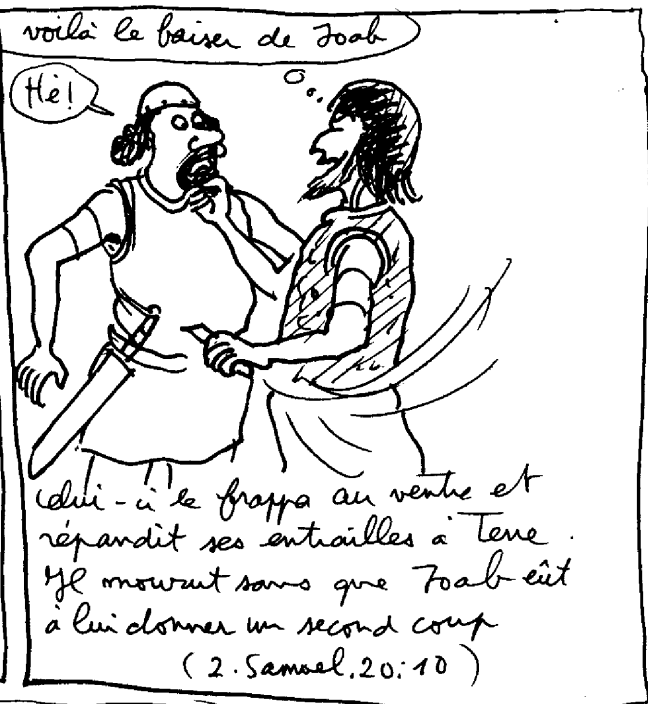 voilà le baiser de Joab
Hé!
Celui-ci le frappa au ventre et
répandit ses entrailles à Terre.
Il mourut sans que Joab eût
à lui donner un second coup
(2. Samuel. 20:10)